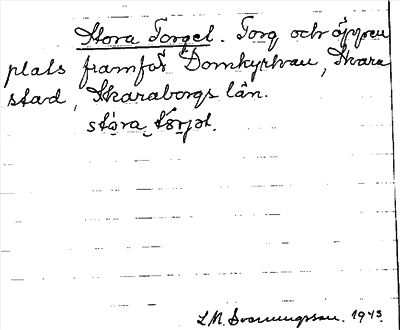 Stora Torget. Torg och öppen
plats framför Domkyrkan, Skara
stad, Skaraborgs län.
stora torjət.
L.M. Svanungsson. 1943.